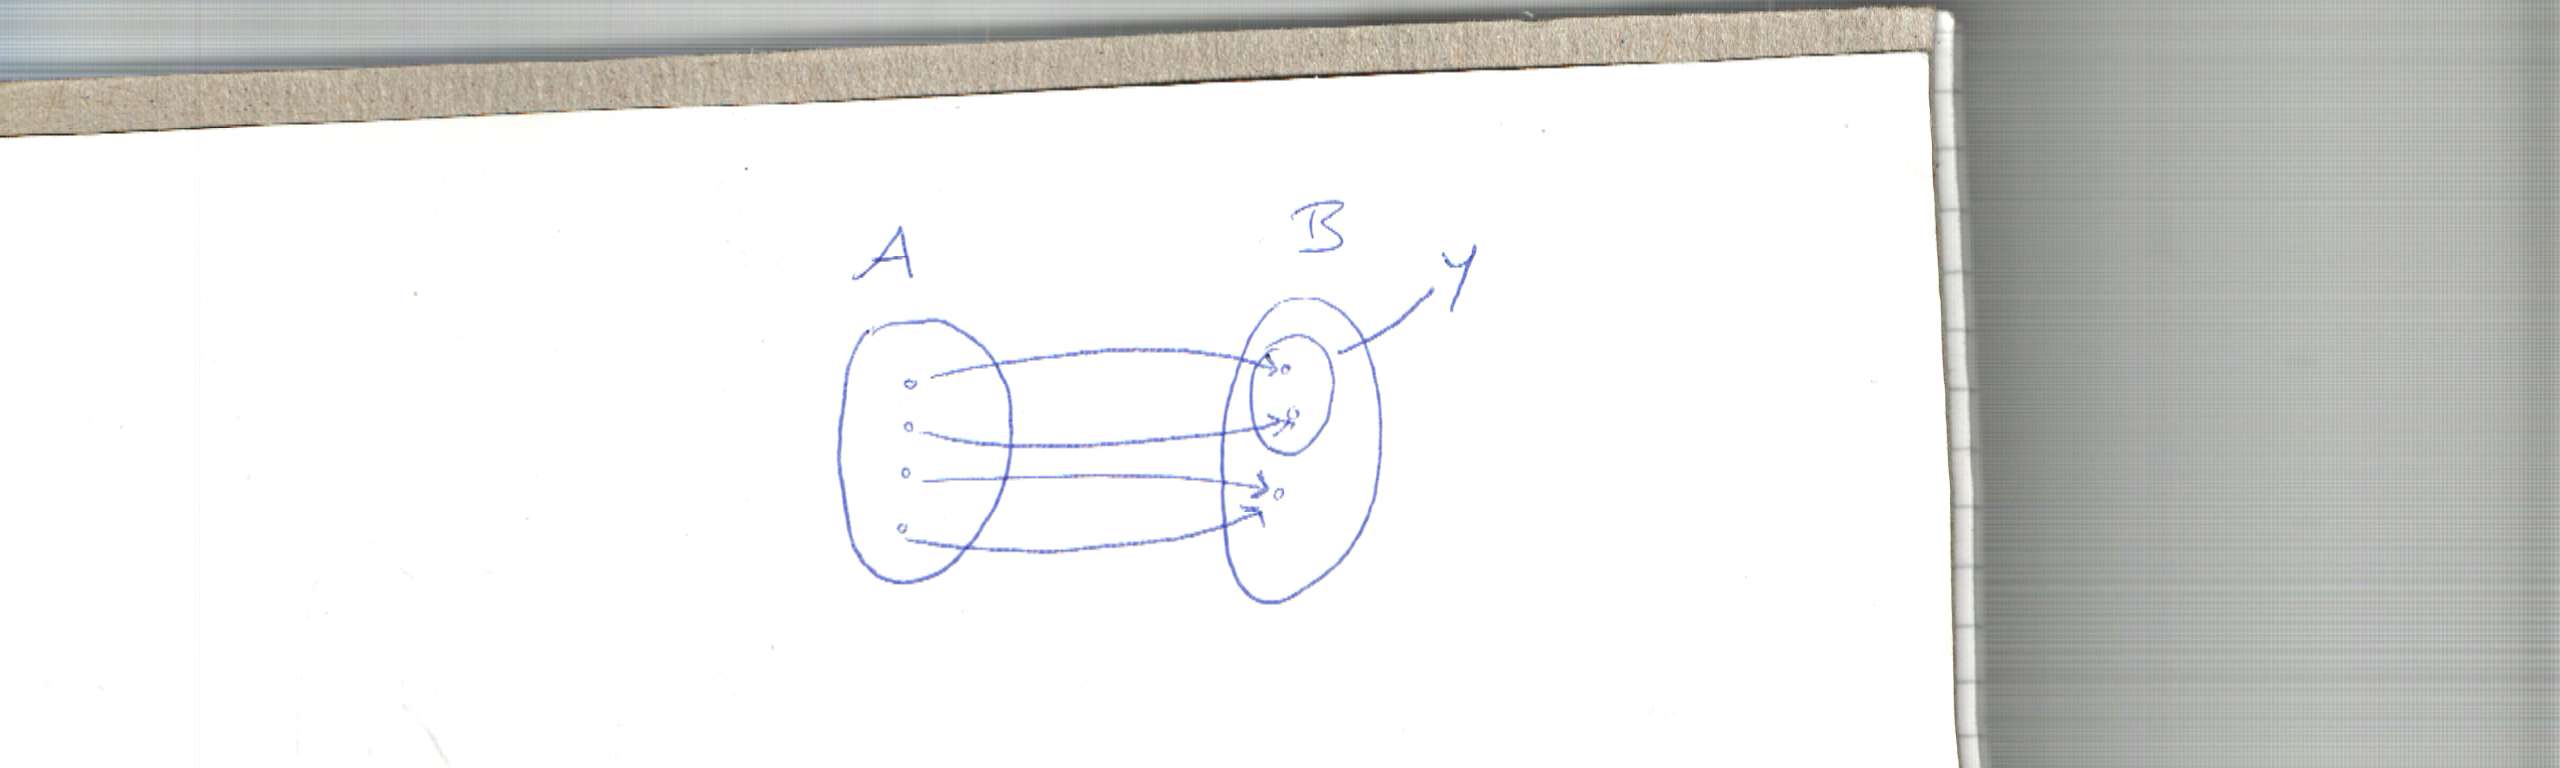 A
B
y